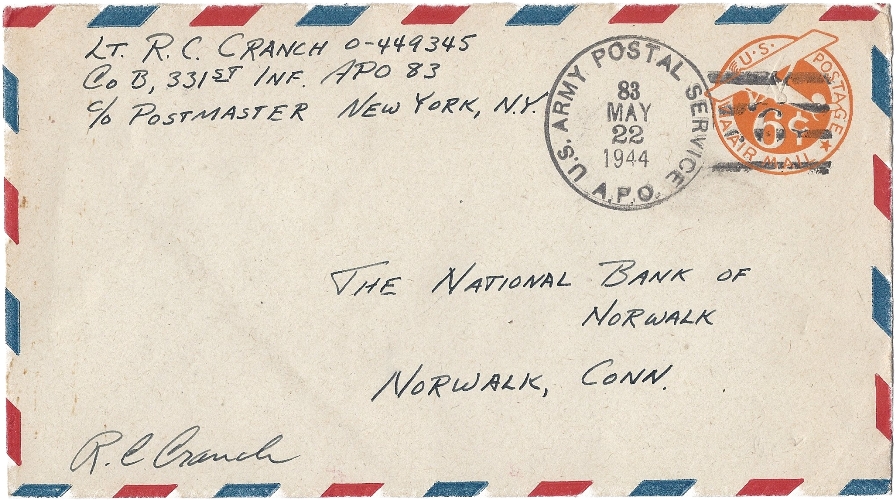 LT. R. C. CRANCH O-449345
CO B, 331ST INF. APO 83
c/o POSTMASTER NEW YORK, N.Y.
U.S. ARMY POSTAL SERVICE
83
MAY
22
1944
A.P.O.
U.S. POSTAGE
6¢
VIA AIR MAIL
THE NATIONAL BANK OF
NORWALK
NORWALK, CONN.
R. C Cranch